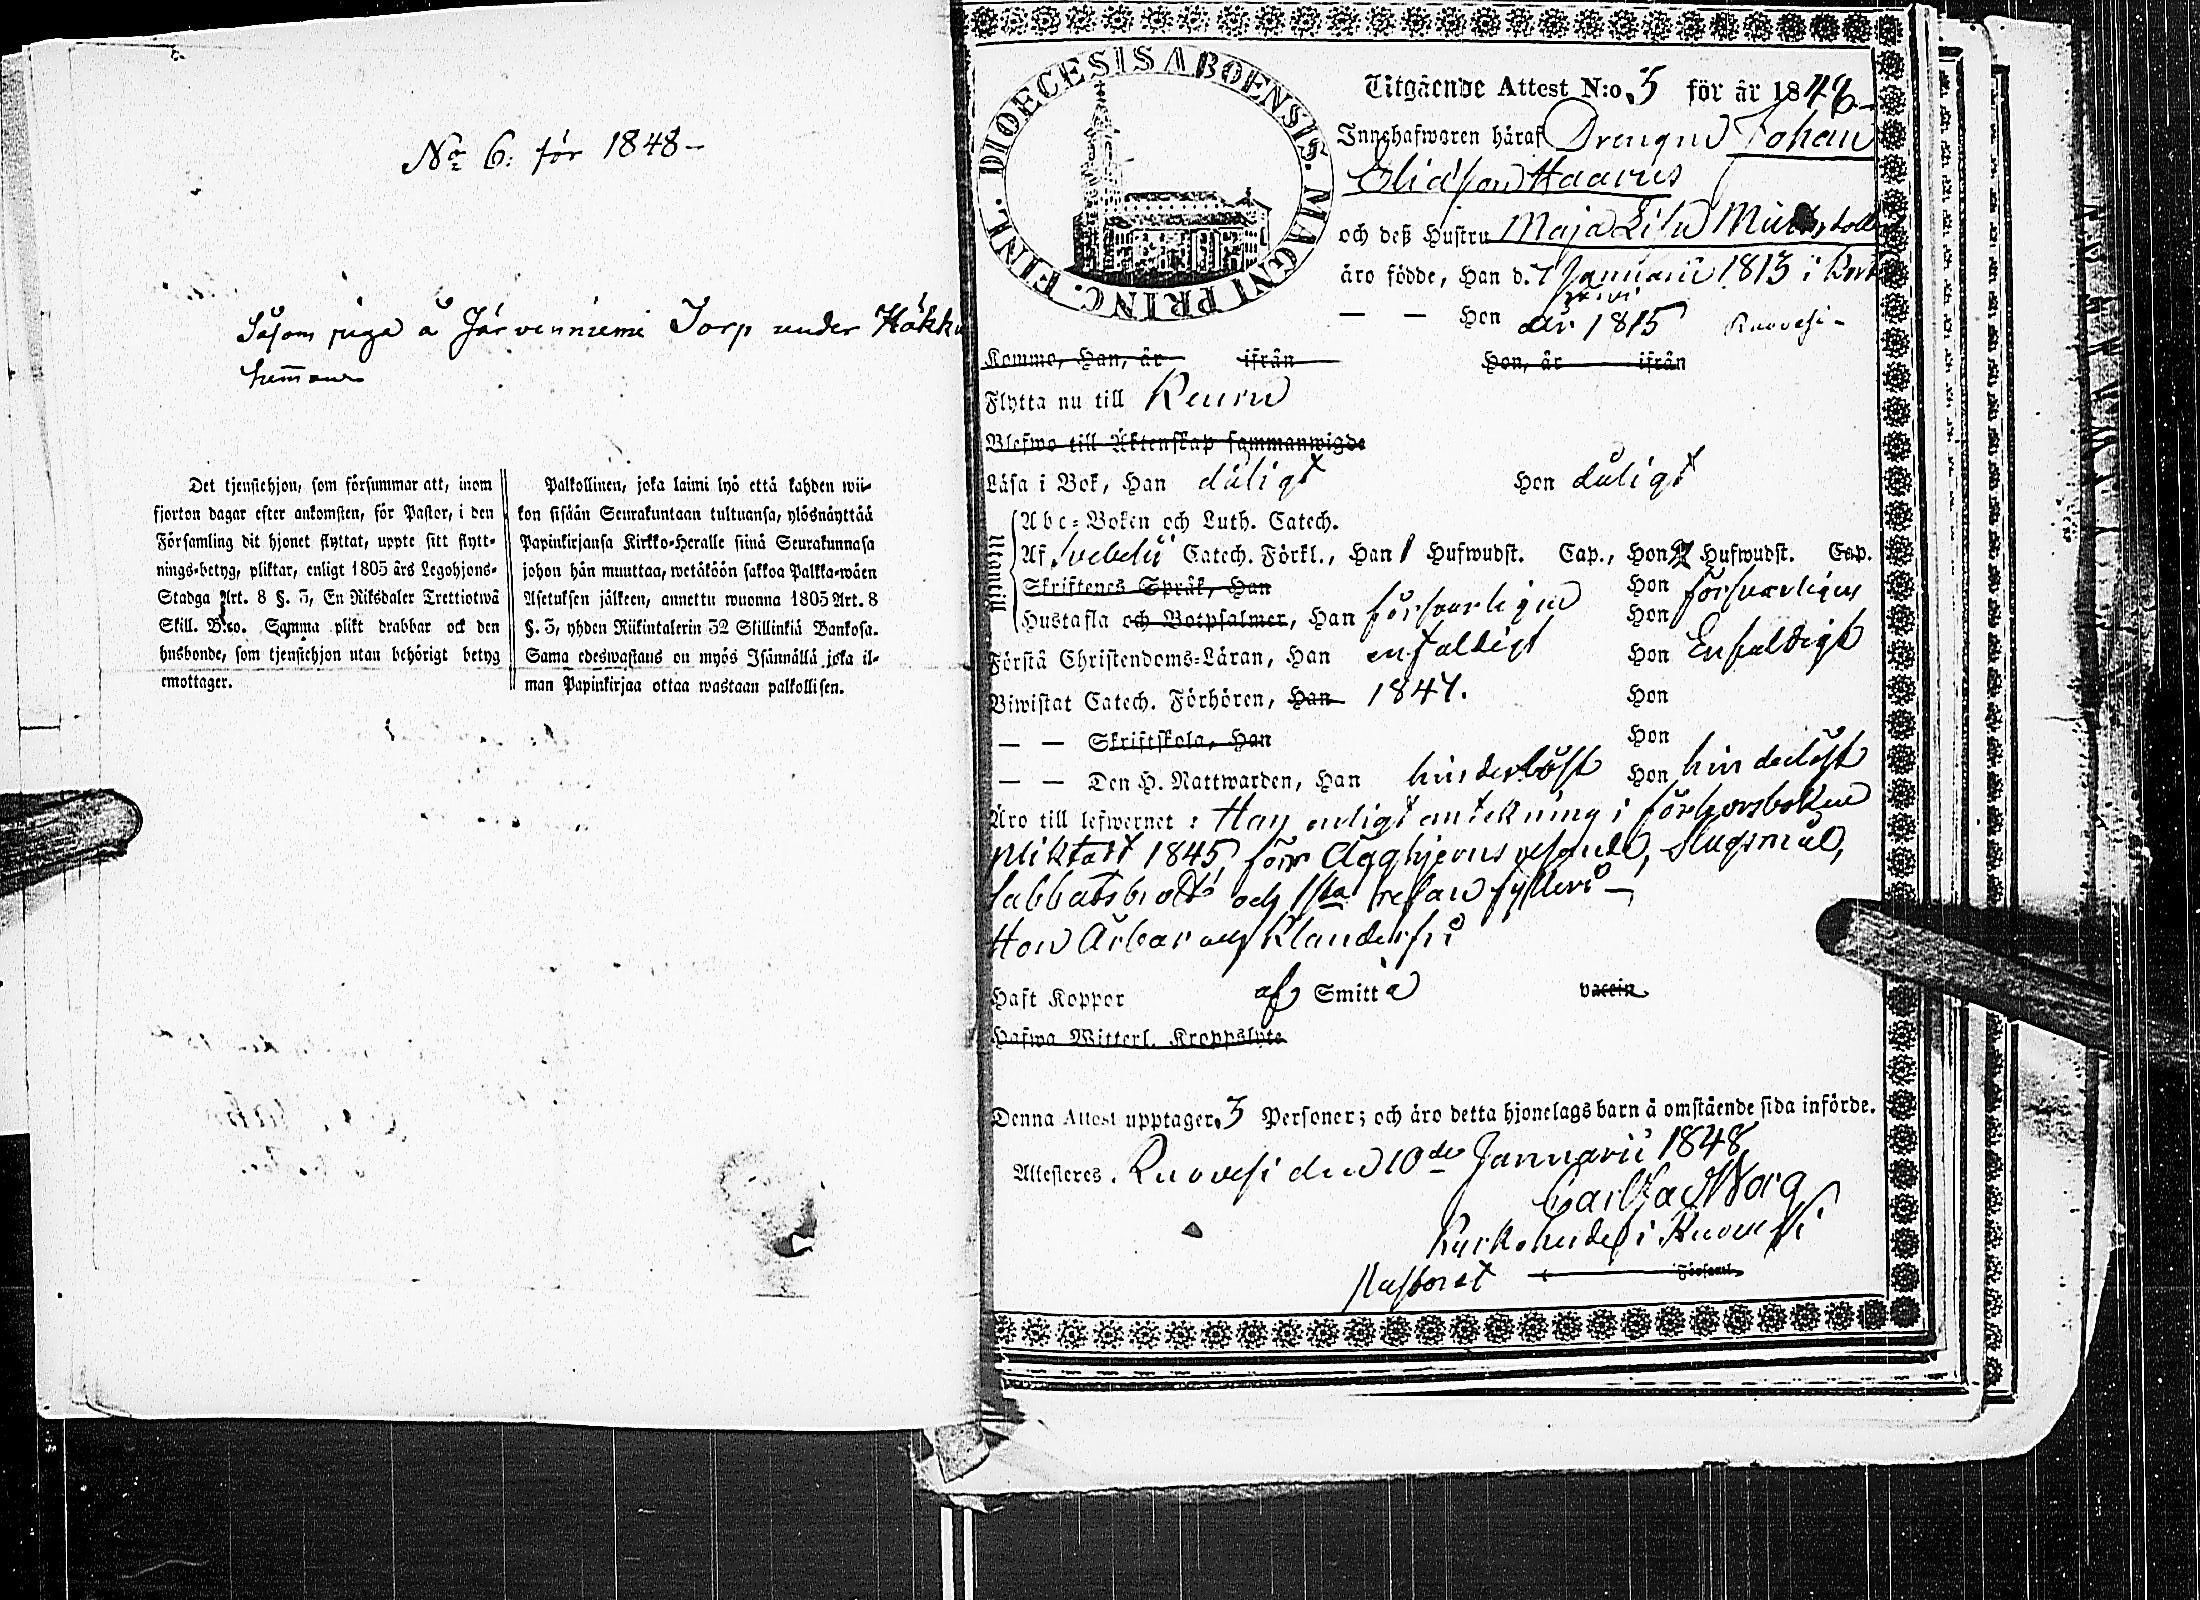 No 6. för 1848 –
Såsom piga å Järvenniemi Torp under Häkki
hemman
Det tjenstehjon, som försummar att, inom
fjorton dagar efter ankomsten, för Pastor, i den
Församling dit hjonet flyttat, uppte sitt flytt-
nings-betyg, pliktar, enligt 1805 års Legohjons-
Stadga Art. 8 §. 3, En Riksdaler Trettiotwå
Skill. B:co. Samma plikt drabbar ock den
husbonde, som tjenstehjon utan behörigt betyg
emottager.
Palkollinen, joka laimi lyö että kahden wii-
kon sisään Seurakuntaan tultuansa, ylösnäyttää
Papinkirjansa Kirkko-Herralle siinä Seurakunnasa
johon hän muuttaa, wetäköön sakkoa Palkka-wäen
Asetuksen jälkeen, annettu wuonna 1805 Art. 8
§. 3, yhden Riikintalerin 32 Skillinkiä Bankosa.
Sama edeswastaus on myös Isännällä joka il-
man Papinkirjaa ottaa wastaan palkollisen.
FINL. DIOECESIS ABOENSIS. MAGNI PRINC.
Utgående Attest N:o 5 för år 1848
Innehafwaren häraf Drengen Johan
Eliasson Haarus
och deß Hustru Maja Lisa
äro födde, Han d. 7 Januarii 1813 i
— — Hon år 1815 Ruovesi –
Komme, Han, år ifrån Hon, år ifrån
Flytta nu till Keuru
Blefwo till Äktenskap sammanwigde
Läsa i Bok, Han dåligt Hon dåligt
Abc-Boken och Luth. Catech.
Af Svebelii Catech. Förkl., Han 1 Hufwudst. Cap., Hon 2 Hufwudst. Cap.
Skriftenes Språk, Han Hon försvarligen
Hustafla och Botpsalmer, Han försvarligen Hon
Förstå Christendoms-Läran, Han enfaldigt Hon Enfaldigt
Biwistat Catech. Förhören, Han 1847. Hon
— — Skriftskola, Han Hon
— — Den H. Nattwarden, Han hinderlöst Hon hinderlöst
Äro till lefwernet: Han enligt antekning i förhörsboken
pliktat 1845 för slagsmål,
sabbatsbrott och 1sta resan fylleri –
Hon Ärbar och Klanderfri
Haft Koppor af Smitta vaccin
Hafwa Witterl. Kroppslyte
Denna Attest upptager 3 Personer; och äro detta hjonelags barn å omstående sida införde.
Attesteres. Ruovesi den 10de Januarii 1848
Carl Borg
Kyrkoherde i Ruovesi
Pastorat Församl.